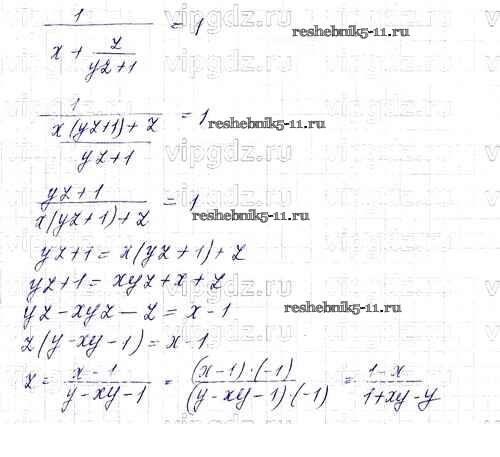 1/(x + z/(yz+1)) = 1
reshebnik5-11.ru
1/((x(yz+1)+z)/(yz+1)) = 1
reshebnik5-11.ru
(yz+1)/(x(yz+1)+z) = 1
reshebnik5-11.ru
yz+1 = x(yz+1)+z
yz+1 = xyz+x+z
yz-xyz-z = x-1
reshebnik5-11.ru
z(y-xy-1) = x-1
z = (x-1)/(y-xy-1) = ((x-1)·(-1))/((y-xy-1)·(-1)) = (1-x)/(1+xy-y)
vipgdz.ru
vipgdz.ru
vipgdz.ru